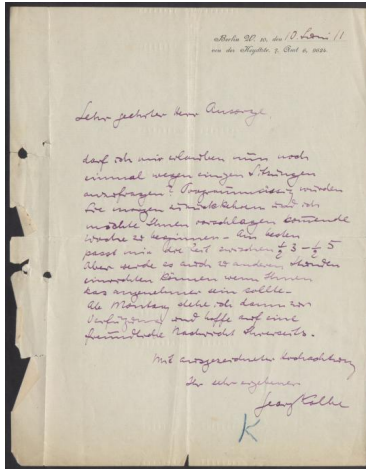 Berlin W. 10, den 10 Juni 11
von der Heydtstr. 7, Amt 6,
Sehr geehrter Herr Ansorge,
darf ich mir erlauben nun noch
einmal wegen einigen Sitzungen
anzufragen? Programmässig würden
Sie morgen zurückkehren und ich
möchte Ihnen vorschlagen kommende
Woche zu beginnen. Am besten
passt mir die Zeit zwischen ½ 3 - ½ 5
Aber werde es auch zu anderen Stunden
einrichten können wenn Ihnen
das angenehmer sein sollte.
Ab Montag stehe ich dann zur
Verfügung und hoffe auf eine
freundliche Nachricht Ihrerseits.
Mit ausgezeichneter Hochachtung
Ihr sehr ergebener
Georg Kolbe
K